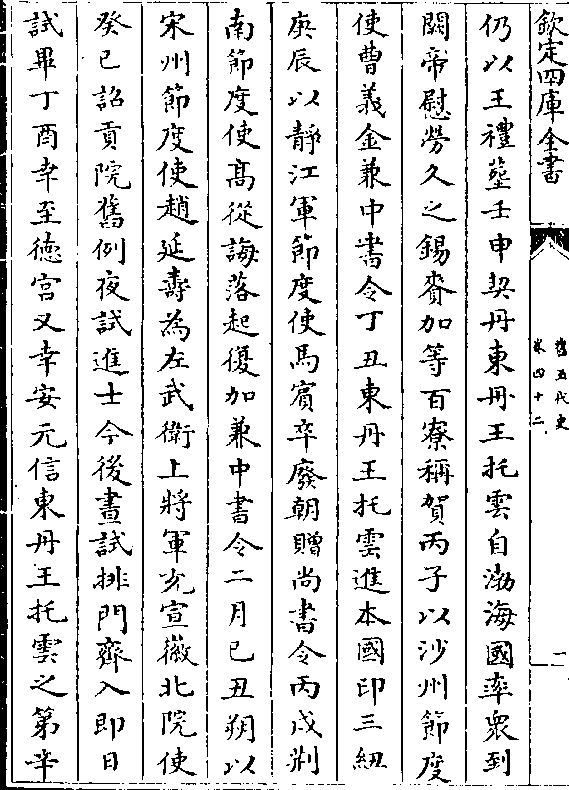 欽定四庫全書
舊五代史
卷四十二
一
仍以王禮塟壬申契丹東丹王托雲自渤海國率衆到
闕帝慰勞久之錫賚加等百寮稱賀丙子以沙州節度
使曹義金兼中書令丁丑東丹王托雲進本國印三紐
庚辰以靜江軍節度使馬賓卒廢朝贈尚書令丙戌荆
南節度使髙從誨落起復加兼中書令二月己丑朔以
宋州節度使趙延壽為左武衛上將軍充宣徽北院使
癸巳詔貢院舊例夜試進士今後晝試排門齊入即日
試畢丁酉幸至徳宮又幸安元信東丹王托雲之第辛